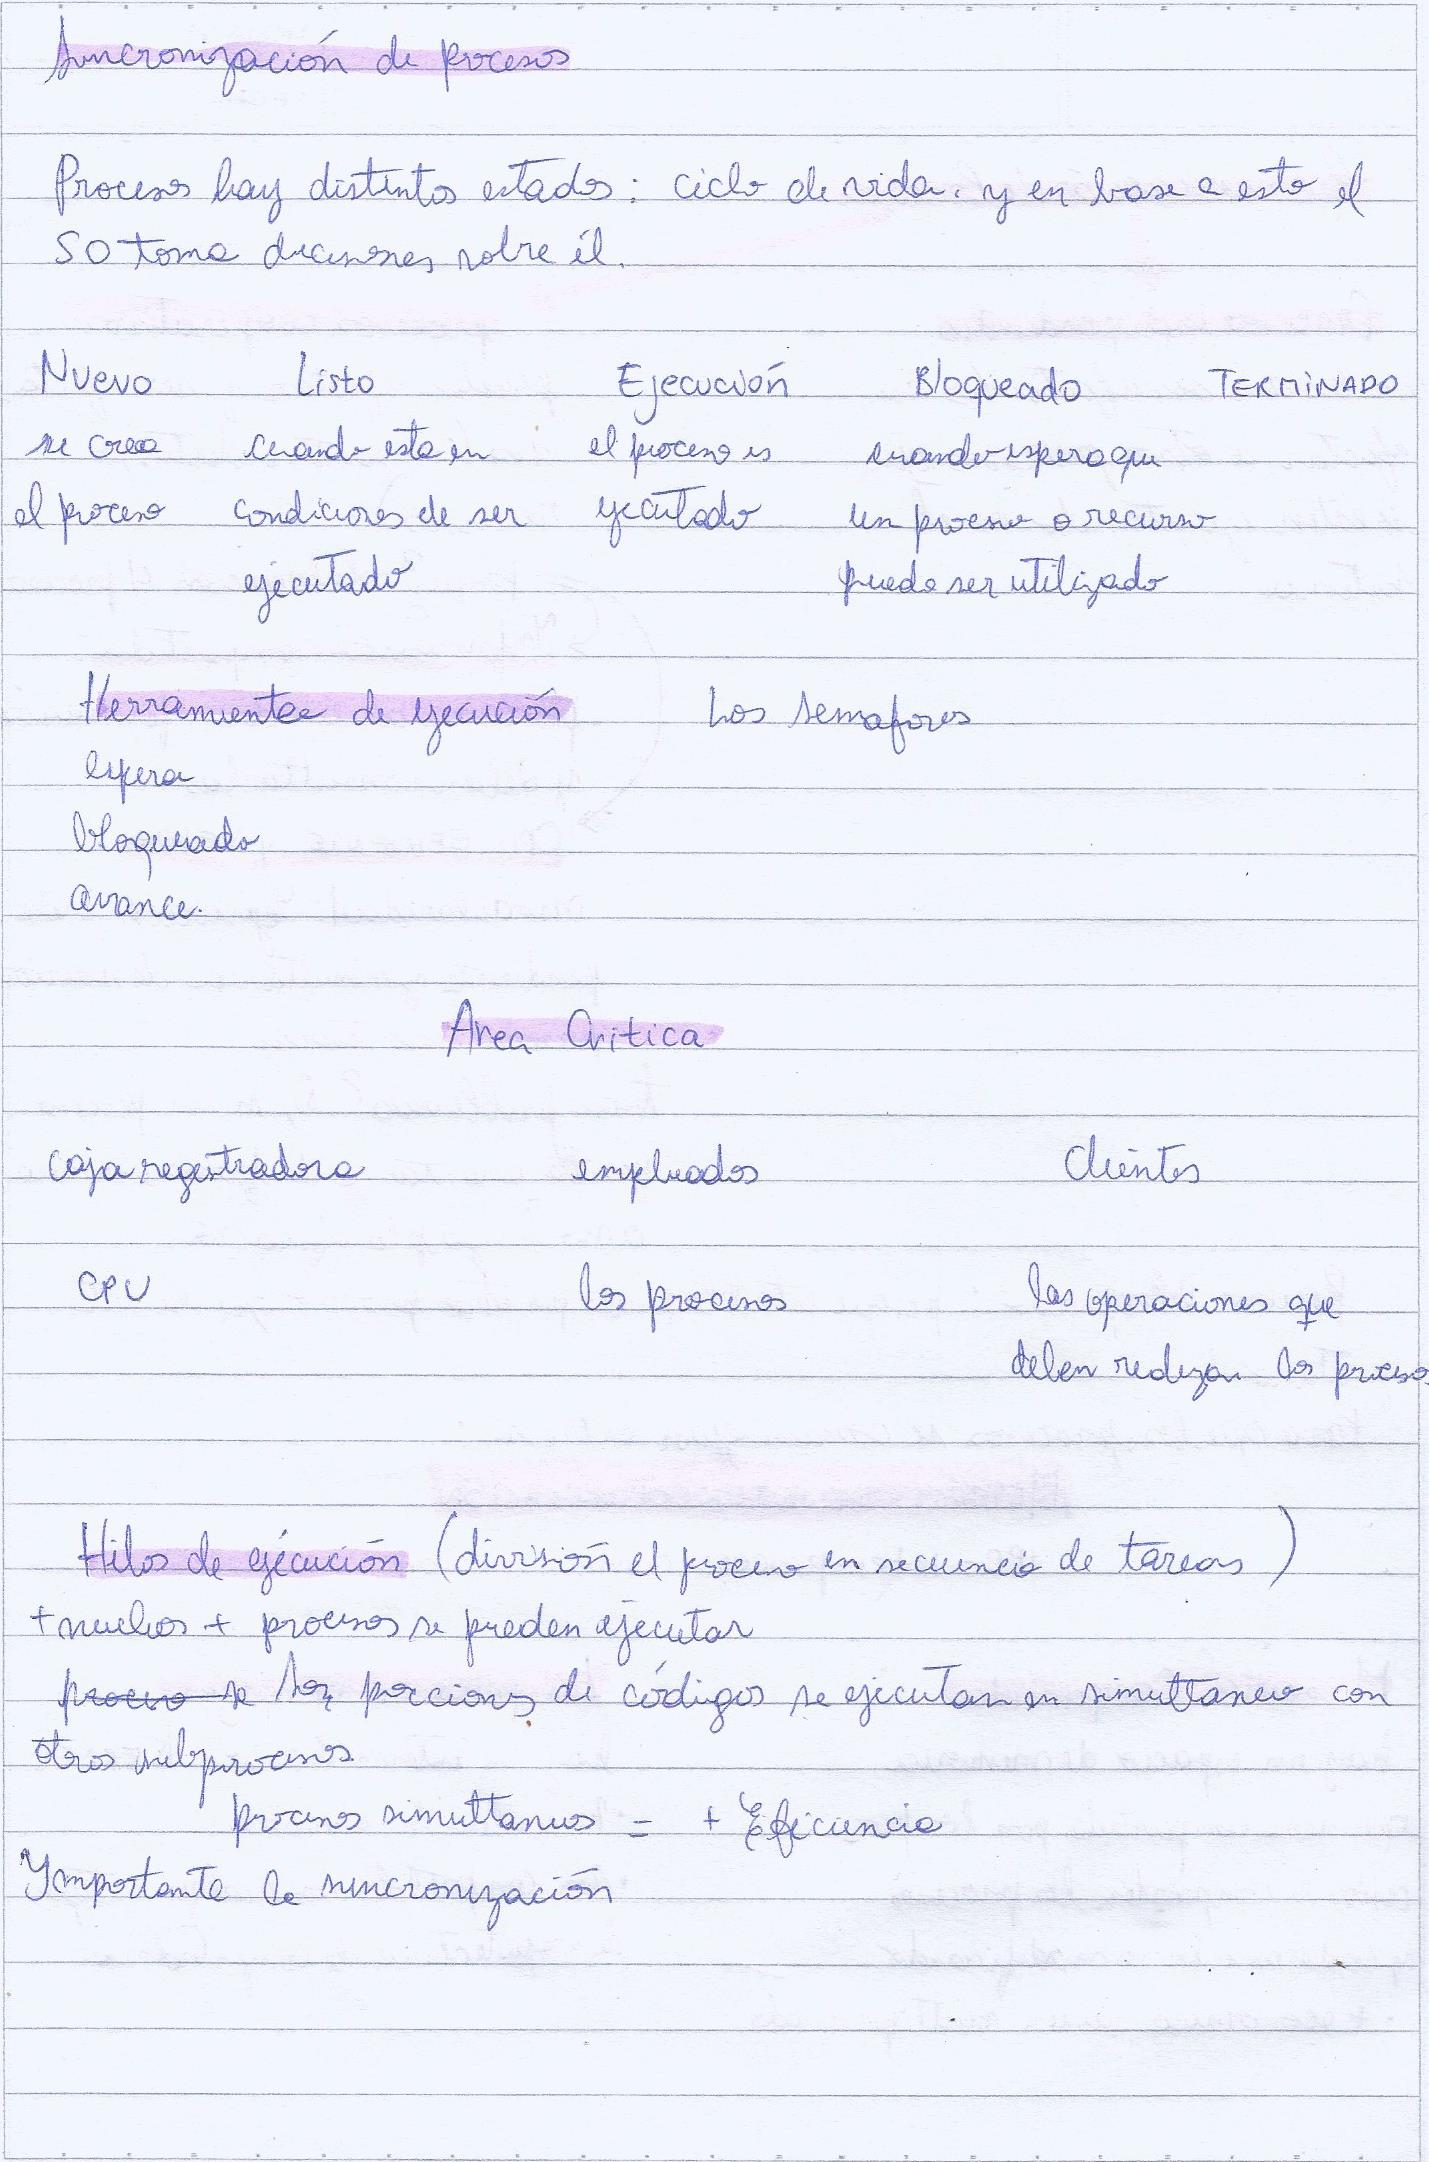 Sincronización de procesos
Procesos hay distintos estados: ciclo de vida. y en base a esto el
SO toma decisiones sobre él.
Nuevo Listo Ejecución Bloqueado TERMINADO
se crea cuando esta en el proceso es cuando espera que
el proceso condiciones de ser ejecutado un proceso o recurso
ejecutado puede ser utilizado
Herramientas de ejecución Los semaforos
espera
bloqueado
avance.
Area Critica
caja registradora empleados Clientes
CPU los procesos las operaciones que
deben realizar los procesos
Hilos de ejecución (división el proceso en secuencia de tareas)
+ nucleos + procesos se pueden ejecutar
proceso se Son porciones de códigos se ejecutan en simultaneo con
otros subprocesos.
procesos simultaneos = + Eficiencia
Ymportante la sincronización